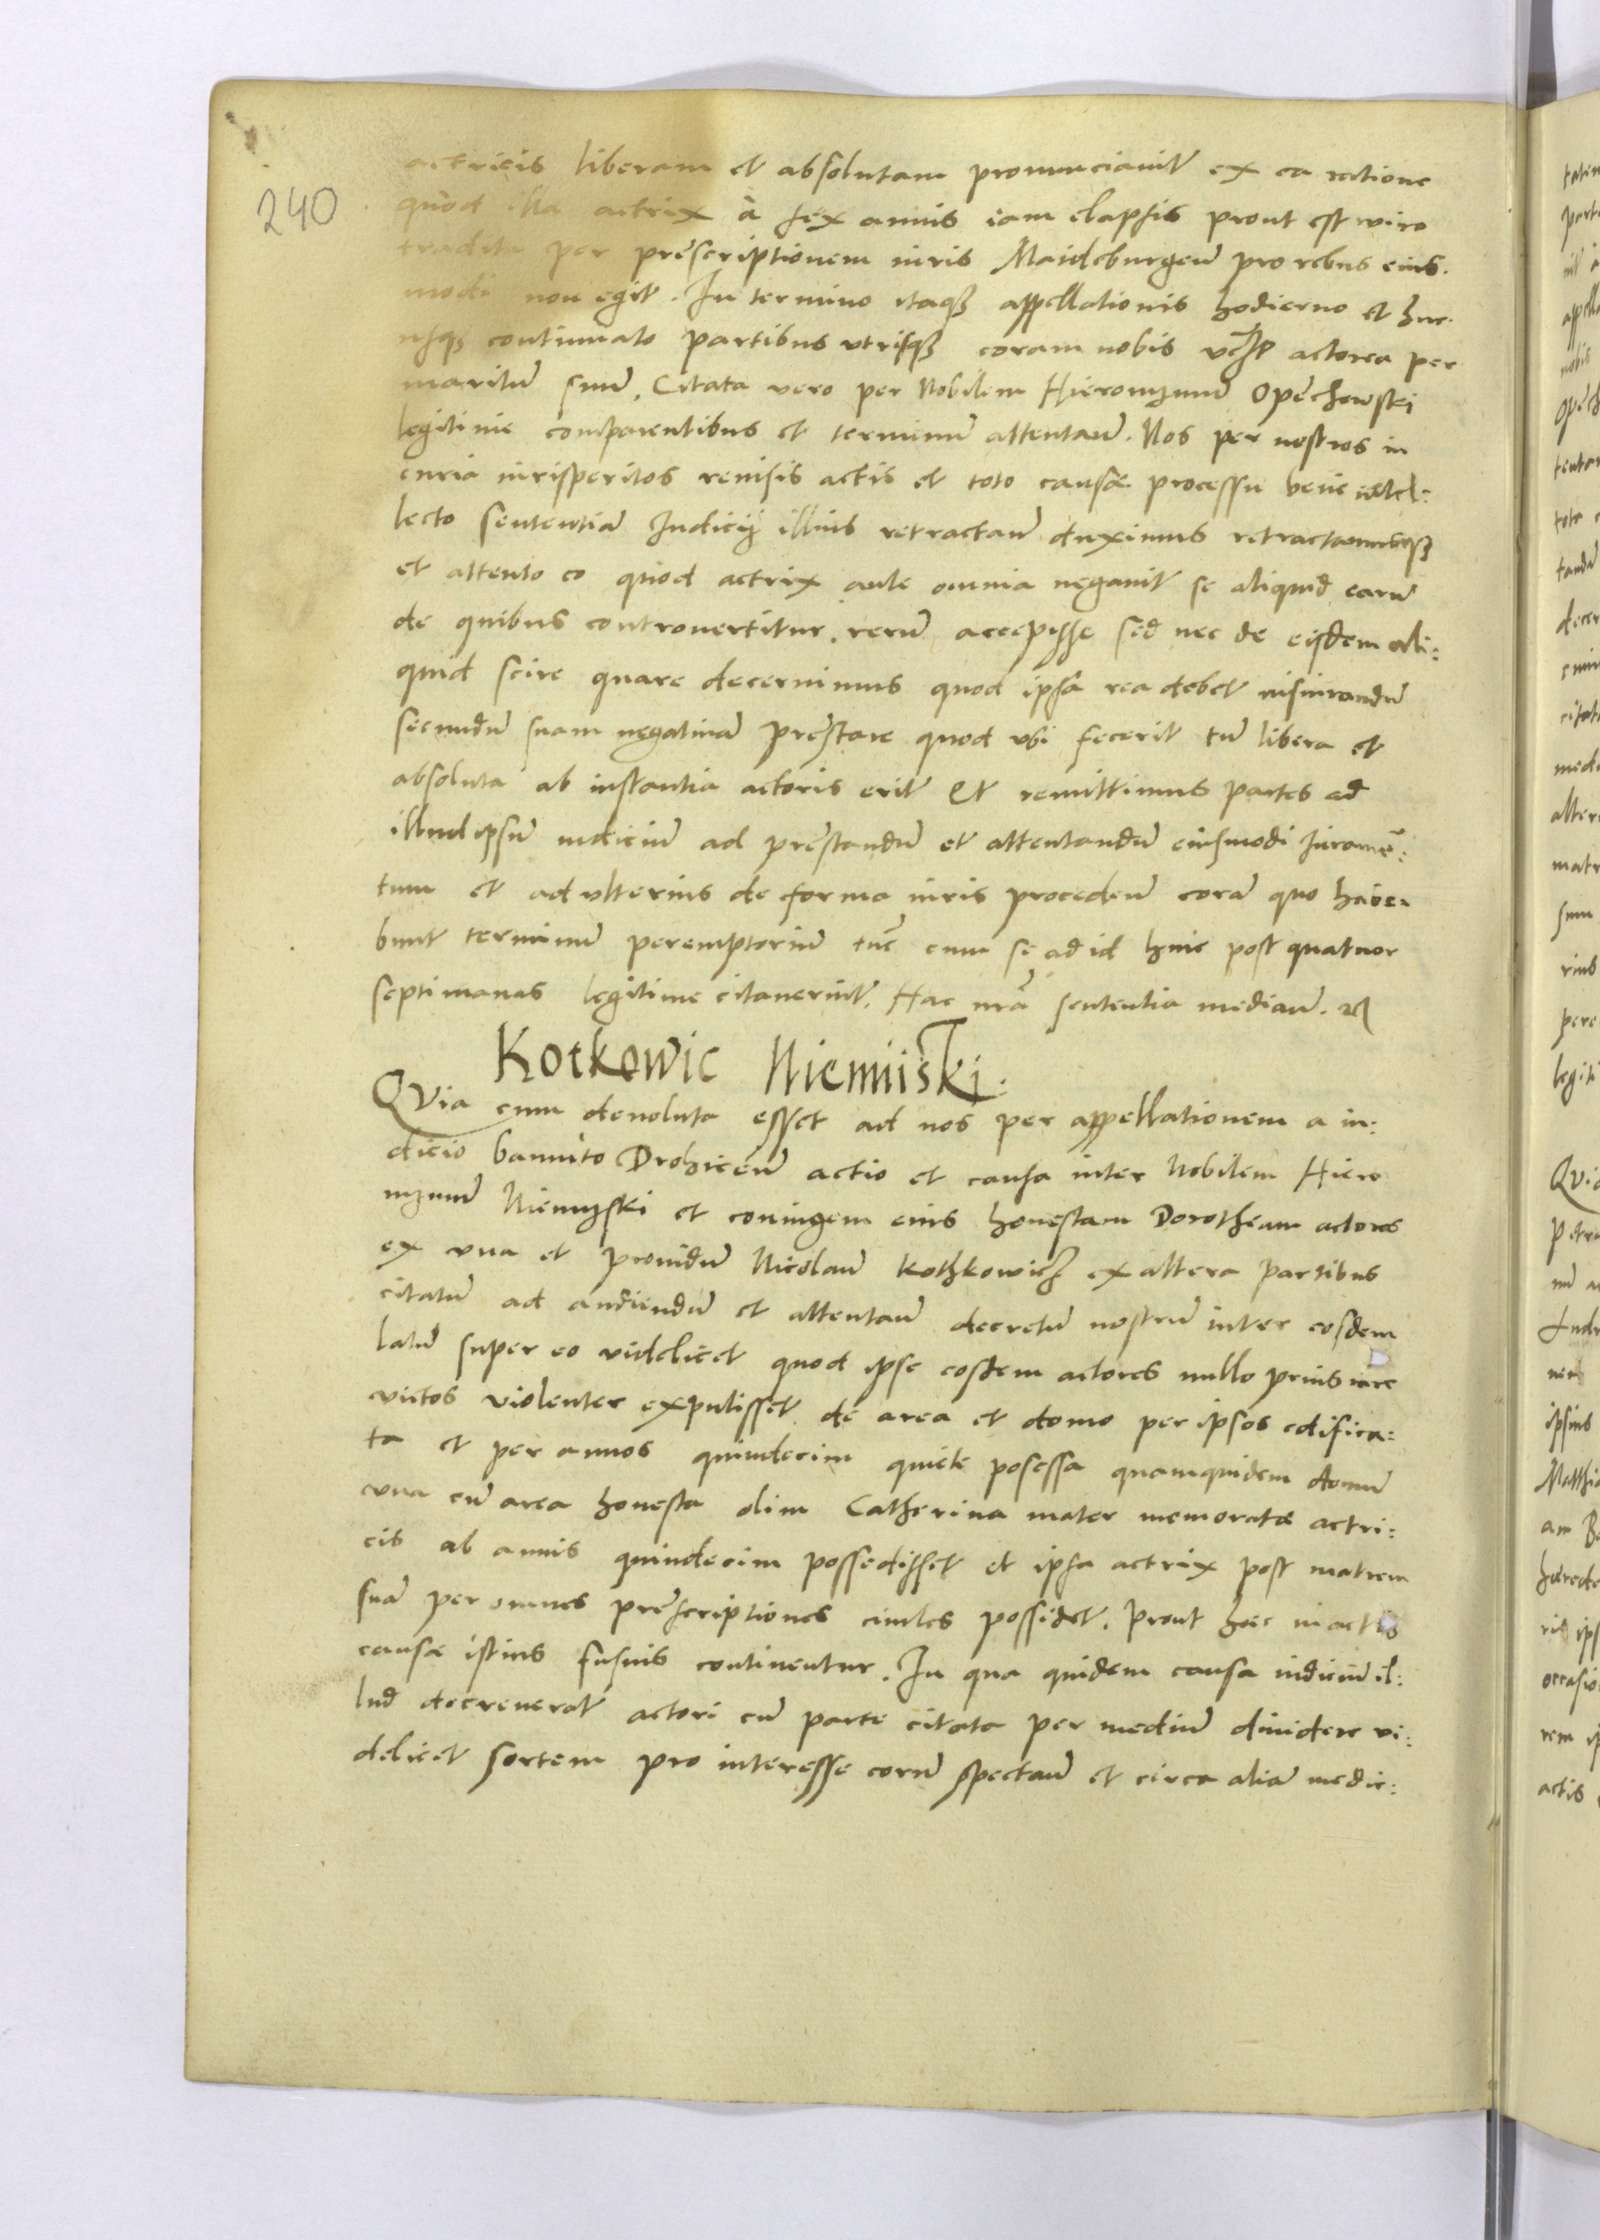 240
actricis liberam et absolutam pronunciavit ex ea ratione
quod illa actrix à sex annis iam elapsis prout est viro
tradita per prescriptionem iuris Maideburgen̄ pro rebus eius-
modi non egit. In termino itaqȝ appellationis hodierno et huc-
usqȝ continuato partibus utrisqȝ coram nobis actorea per
maritū suū, Citata vero per Nobilem Hieronymum Opechowski
legitime comparentibus et terminū attentan̄. Nos per nostros in
curia iurisperitos revisis actis et toto causæ processu bene intel:
lecto sententiā Iudicij illius retractan̄ duximus retractamusqȝ
et attento eo quod actrix ante omnia negavit se aliquid earū
de quibus controvertitur, rerū accepisse sed nec de eisdem ali:
quid scire quare decernimus quod ipsa rea debet iusiurandū
secundū suam negativā prestare quod ubi fecerit tū libera et
absoluta ab instantia actoris erit Et remittimus partes ad
illud ipsū iudiciū ad prestandū et attentandū eiusmodi iuramē:
tum et ad ulterius de forma iuris proceden̄ corā quo habe-
bunt terminū peremptoriū tūc cum se ad id hinc post quatuor
septimanas legitime citaverint. Hac nrā sententia median̄.
Kotkowic Niemiiski.
Quia cum devoluta esset ad nos per appellationem a iu:
dicio bannito Drohicen̄ actio et causa inter Nobilem Hiero
nymum Niemyski et coniugem eius honestam Dorotheam actores
ex una et providū Nicolaū Kothkowicz ex altera partibus
citatū ad audiendū et attentan̄ decretū nostrū inter eosdem
latū super eo videlicet quod ipse eosdem actores nullo prius iure
victos violenter expulisset de area et domo per ipsos edifica:
ta et per annos quindecim quiete posessa quamquidem domū
una cū area honesta olim Catherina mater memoratæ actri:
cis ab annis quindecim possedisset et ipsa actrix post matrem
suā per omnes prescriptiones civiles possidet. Prout hæc in actis
causæ istius fusius continentur. In qua quidem causa iudiciū il:
lud decreverat actori cū parte citata per mediū dividere vi:
delicet sortem pro interesse eorū spectan̄ et circa aliā medie: